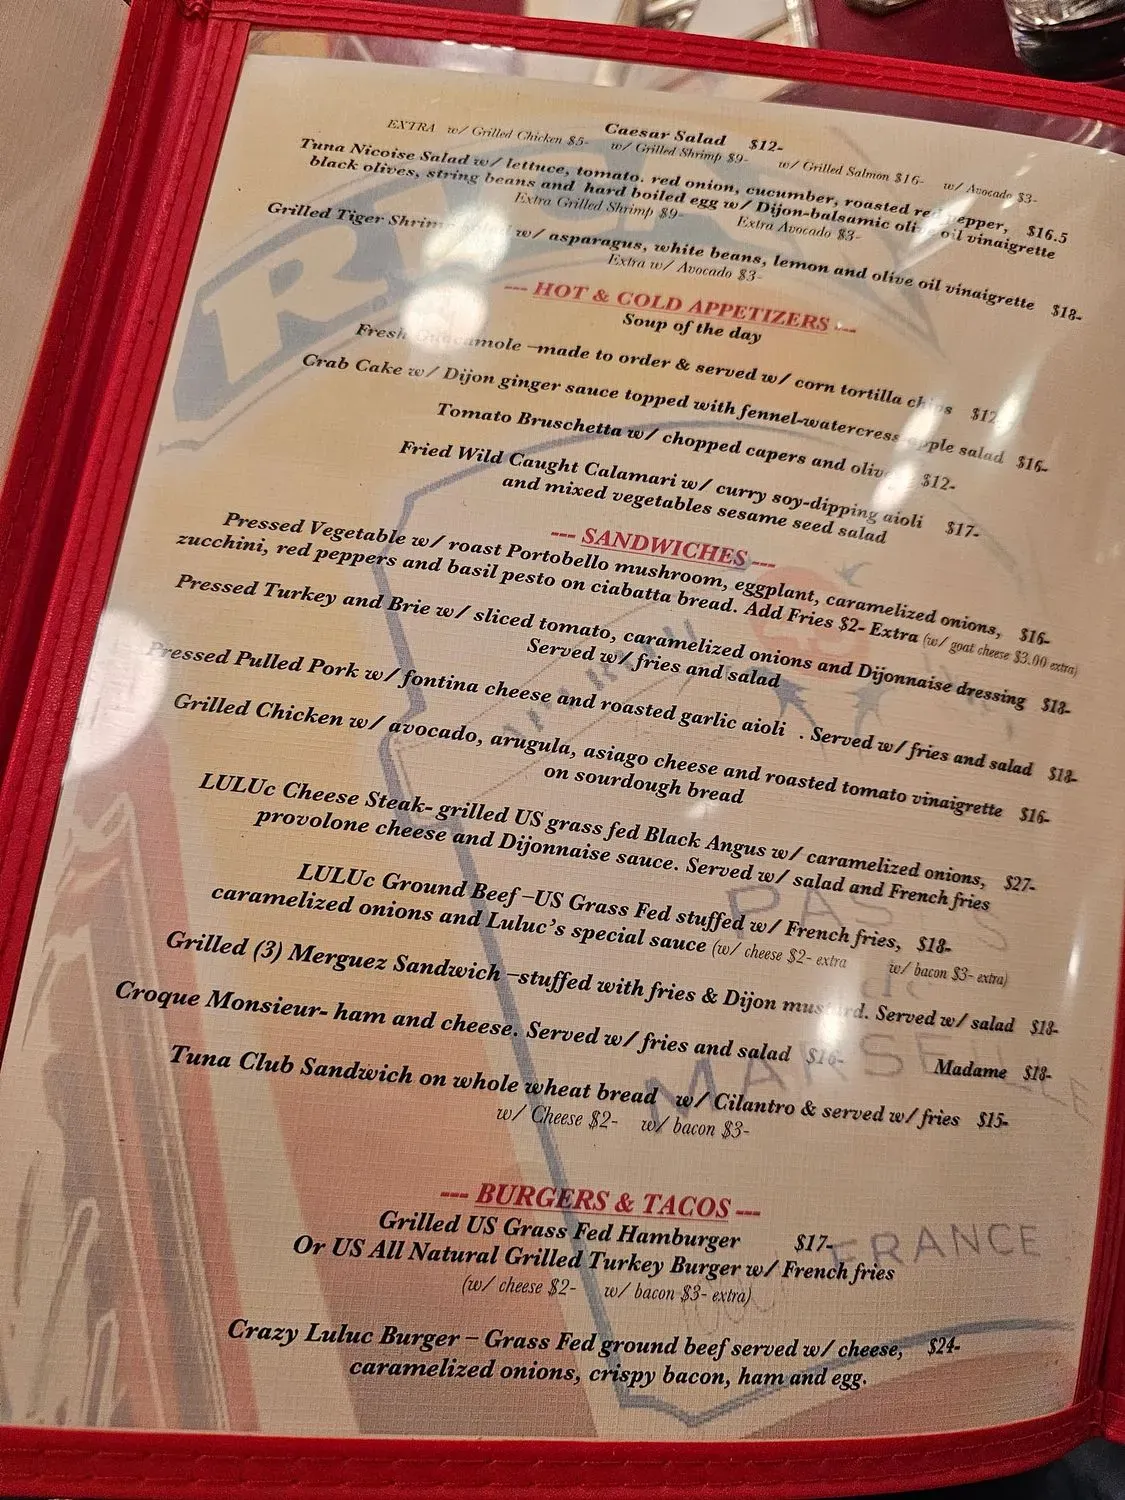 Caesar Salad $12-
EXTRA w/ Grilled Chicken $5- w/ Grilled Shrimp $9- w/ Grilled Salmon $16- w/ Avocado $3-
Tuna Nicoise Salad w/ lettuce, tomato. red onion, cucumber, roasted red pepper, $16.5
black olives, string beans and hard boiled egg w/ Dijon-balsamic olive oil vinaigrette
Extra Grilled Shrimp $9- Extra Avocado $3-
Grilled Tiger Shrimp w/ asparagus, white beans, lemon and olive oil vinaigrette $18-
Extra w/ Avocado $3-
--- HOT & COLD APPETIZERS ---
Soup of the day
Fresh Guacamole –made to order & served w/ corn tortilla chips $12-
Crab Cake w/ Dijon ginger sauce topped with fennel-watercress apple salad $16-
Tomato Bruschetta w/ chopped capers and olive $12-
Fried Wild Caught Calamari w/ curry soy-dipping aioli $17-
and mixed vegetables sesame seed salad
--- SANDWICHES ---
Pressed Vegetable w/ roast Portobello mushroom, eggplant, caramelized onions, $16-
zucchini, red peppers and basil pesto on ciabatta bread. Add Fries $2- Extra (w/ goat cheese $3.00 extra)
Pressed Turkey and Brie w/ sliced tomato, caramelized onions and Dijonnaise dressing $18-
Served w/ fries and salad
Pressed Pulled Pork w/ fontina cheese and roasted garlic aioli . Served w/ fries and salad $18-
Grilled Chicken w/ avocado, arugula, asiago cheese and roasted tomato vinaigrette $16-
on sourdough bread
LULUc Cheese Steak- grilled US grass fed Black Angus w/ caramelized onions, $27-
provolone cheese and Dijonnaise sauce. Served w/ salad and French fries
LULUc Ground Beef –US Grass Fed stuffed w/ French fries, $18-
caramelized onions and Luluc's special sauce (w/ cheese $2- extra w/ bacon $3- extra)
Grilled (3) Merguez Sandwich –stuffed with fries & Dijon mustard. Served w/ salad $18-
Croque Monsieur- ham and cheese. Served w/ fries and salad $16- Madame $18-
Tuna Club Sandwich on whole wheat bread w/ Cilantro & served w/ fries $15-
w/ Cheese $2- w/ bacon $3-
--- BURGERS & TACOS ---
Grilled US Grass Fed Hamburger $17-
Or US All Natural Grilled Turkey Burger w/ French fries
(w/ cheese $2- w/ bacon $3- extra)
Crazy Luluc Burger – Grass Fed ground beef served w/ cheese, $24-
caramelized onions, crispy bacon, ham and egg.
PASTIS
de
MARSEILLE
FRANCE